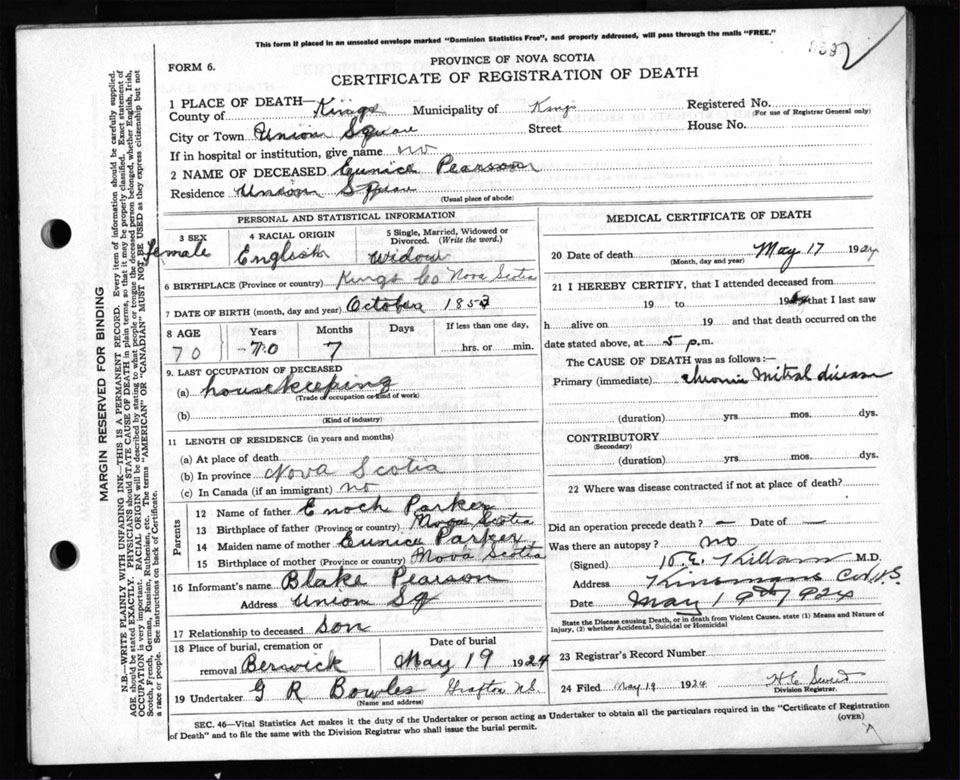 This form if placed in an unsealed envelope marked "Dominion Statistics Free", and properly addressed, will pass through the mails "FREE."
FORM 6.
PROVINCE OF NOVA SCOTIA
CERTIFICATE OF REGISTRATION OF DEATH
1 PLACE OF DEATH—
County of Kings Municipality of Kings Registered No.
(For use of Registrar General only)
City or Town Union Square Street House No.
If in hospital or institution, give name no
2 NAME OF DECEASED Eunice Pearson
Residence Union Square
(Usual place of abode)
PERSONAL AND STATISTICAL INFORMATION
3 SEX 4 RACIAL ORIGIN 5 Single, Married, Widowed or Divorced. (Write the word.)
Female English Widow
6 BIRTHPLACE (Province or country) Kings Co Nova Scotia
7 DATE OF BIRTH (month, day and year) October
8 AGE Years Months Days If less than one day,
70 70 7 hrs. or min.
9. LAST OCCUPATION OF DECEASED
(a) housekeeping
(Trade of occupation or kind of work)
(b)
(Kind of industry)
11 LENGTH OF RESIDENCE (in years and months)
(a) At place of death
(b) In province Nova Scotia
(c) In Canada (if an immigrant) no
Parents
12 Name of father Enoch Parker
13 Birthplace of father (Province or country) Nova Scotia
14 Maiden name of mother Eunice Parker
15 Birthplace of mother (Province or country) Nova Scotia
16 Informant's name Blake Pearson
Address Union Sq
17 Relationship to deceased son
18 Place of burial, cremation or removal Berwick Date of burial May 19 1924
19 Undertaker G R Bowles Grafton N.S.
(Name and address)
MEDICAL CERTIFICATE OF DEATH
20 Date of death May 17 1924
(Month, day and year)
21 I HEREBY CERTIFY, that I attended deceased from
19 to 19 that I last saw
h alive on 19 and that death occurred on
date stated above, at 5 p.m.
The CAUSE OF DEATH was as follows:—
Primary (immediate) chronic Mitral disease
(duration) yrs. mos. dys.
CONTRIBUTORY
(Secondary)
(duration) yrs. mos. dys.
22 Where was disease contracted if not at place of death?
Did an operation precede death? — Date of —
Was there an autopsy? no
(Signed) Killam M.D.
Address Kinsmans Cor N.S.
Date May 19th 1924
State the Disease causing Death, or in death from Violent Causes, state (1) Means and Nature of Injury, (2) whether Accidental, Suicidal or Homicidal
23 Registrar's Record Number
24 Filed May 19 1924
Division Registrar.
SEC. 46—Vital Statistics Act makes it the duty of the Undertaker or person acting as Undertaker to obtain all the particulars required in the "Certificate of Registration
of Death" and to file the same with the Division Registrar who shall issue the burial permit.
(OVER)
MARGIN RESERVED FOR BINDING
N.B.—WRITE PLAINLY WITH UNFADING INK—THIS IS A PERMANENT RECORD. Every item of information should be carefully supplied.
AGE should be stated EXACTLY. PHYSICIANS should STATE CAUSE OF DEATH in plain terms, so that it may be properly classified. Exact statement of
OCCUPATION is very important. RACIAL ORIGIN will be described by stating to what people or tongue the deceased person belonged, whether English, Irish,
Scotch, French, German, Russian, Ruthenian, etc. The terms "AMERICAN" or "CANADIAN" MUST NOT BE USED as they express citizenship but not
a race or people. See instructions on back of Certificate.